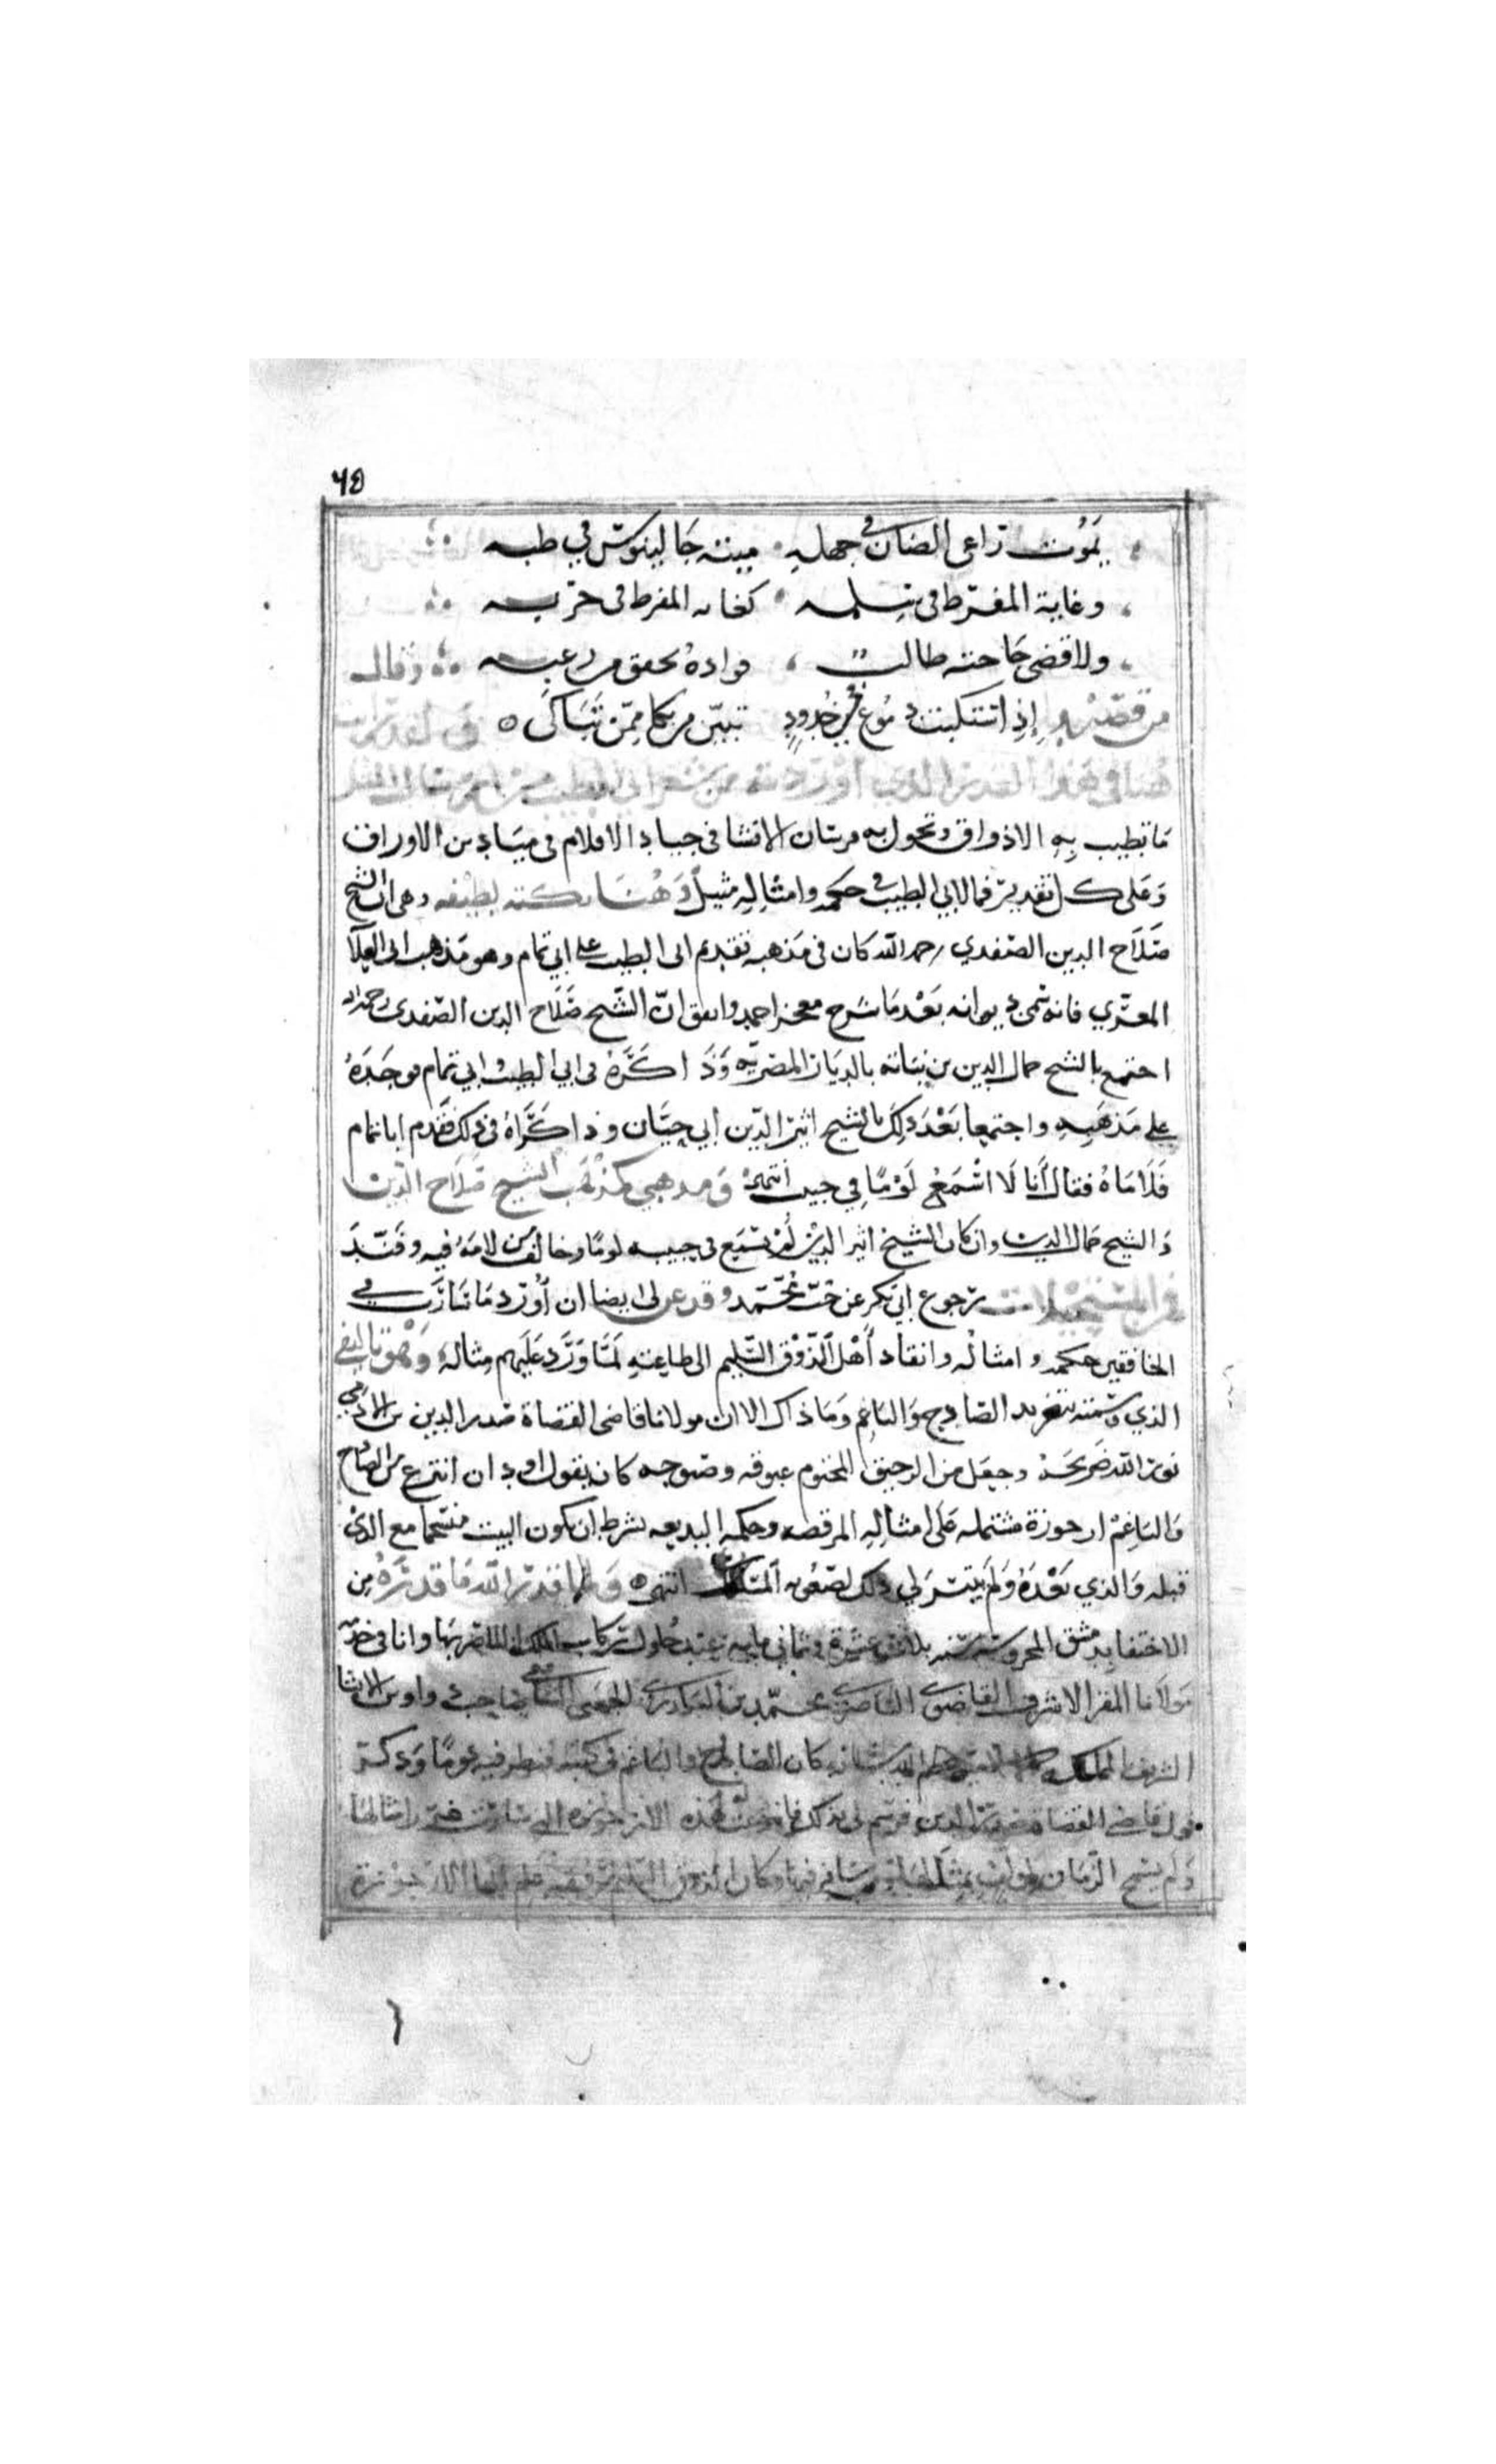 ٦٥
يَمُوت راعي الضان في جهله ميتة جَالينوس في طبه
وغاية المفرط في سِلمه كغاية المفرط في حربه
ولا قضى حَاجته طالب فواده يخفق من رعبه وقال
من قصيدة إذا اشتبكت دموع في خُدودٍ تبيّن من بكا ممّن تَبَاكَى
هنا في هذا القدر الذي أوردته من شعر ابي الطيب
مَا تطيب بِهِ الاذواق وتجول به فرسان الانشا في جياد الاقلام في ميَادين الاوراق
وَعَلى كل تقدير فما لابي الطيب في حكمه وامثالِهِ مثيل وَهُنَا نكتة لطيفه وهي ان الشيخ
صَلَاح الدين الصفدي رحمه الله كان في مَذهبه تقديم ابي الطيب على ابي تمام وهو مَذهب ابي العلآ
المعرّي فانه سمى ديوانه بَعْد مَا شرح معجز احمد واتفق انّ الشّيخ صَلَاح الدين الصّفدي رحمه الله
اجتمع بالشيخ جمال الدين بن نباتة بالديَار المصريّه وَذَاكَرَهُ في ابي الطيب وابي تمام فوجَدَهُ
على مَذهَبِهِ واجتمعا بَعْدَ ذلِكَ بالشيخ اثير الدّين ابي حيّان وذاكَرَاهُ في ذلك فقدم ابا تمام
فَلَامَاهُ فقال أنا لَا اسْمَعُ لَوْمًا في حبيب انتهى وَمذهبي مَذهَب الشيخ صَلَاح الدّين
وَالشيخ جمال الدين وان كان الشيخ اثير الدين لَمْ يسْمَع في حبيبه لومًا وخالف من لامَهُ فيه وفَنّدَ
فمن المستحيلات رجوع ابي بكر عن حُبّ مُحَمّد وقد عن لي ايضا ان أُورد مَا سَارَت في
الخافقين حكمه وامثاله وانقاد أَهْل الذّوْق السّليم الى طاعتهِ لَمّا وَرَد عَلَيهم مِثاله وَهُوَ تاليفي
الذي وسَمته بتغريد الصّادح وَالباغم وَمَا ذاك الا ان مولانا قاضي القضاة صَدر الدين بن الادمي
نوّر الله ضَريحَه وجعَل من الرحيق المختوم غبوقه وصَبوحه كان يقول اود ان انتزع من الصّادح
وَالبَاغِمْ ارجوزة مشتمله عَلى امثالِهِ المرقصه وحكمه البديعه بشرط ان يكون البيت منسَجما مع الذي
قبله وَالذي بَعْدَهُ وَلَم يَتيسّر لي ذلك لصُعُوبة المسَلك انتهى وَلما قدّر الله مَا قدّرَهُ مِن
الاختفا بدمشق المحروسَة سَنه ثلاث عشرة وثماني مايه عند حُلول ركاب الملك الناصر بهَا وانا في خدمة
مَولانا المقر الاشرف القاضي الناصري محمّد بن البارزي الجهني الشافعي صَاحب دواوين الانشا
الشريف عظم الله شانه كان الصّادح والباغم في كتبه فنظر فيه يومًا وَذكر
قول قاضي القضاة صَدر الدين فرسم لي بذلك فانتزعت هَذه الارجوزه التي سَارت امثالها
وَلم يسْمح الزّمان